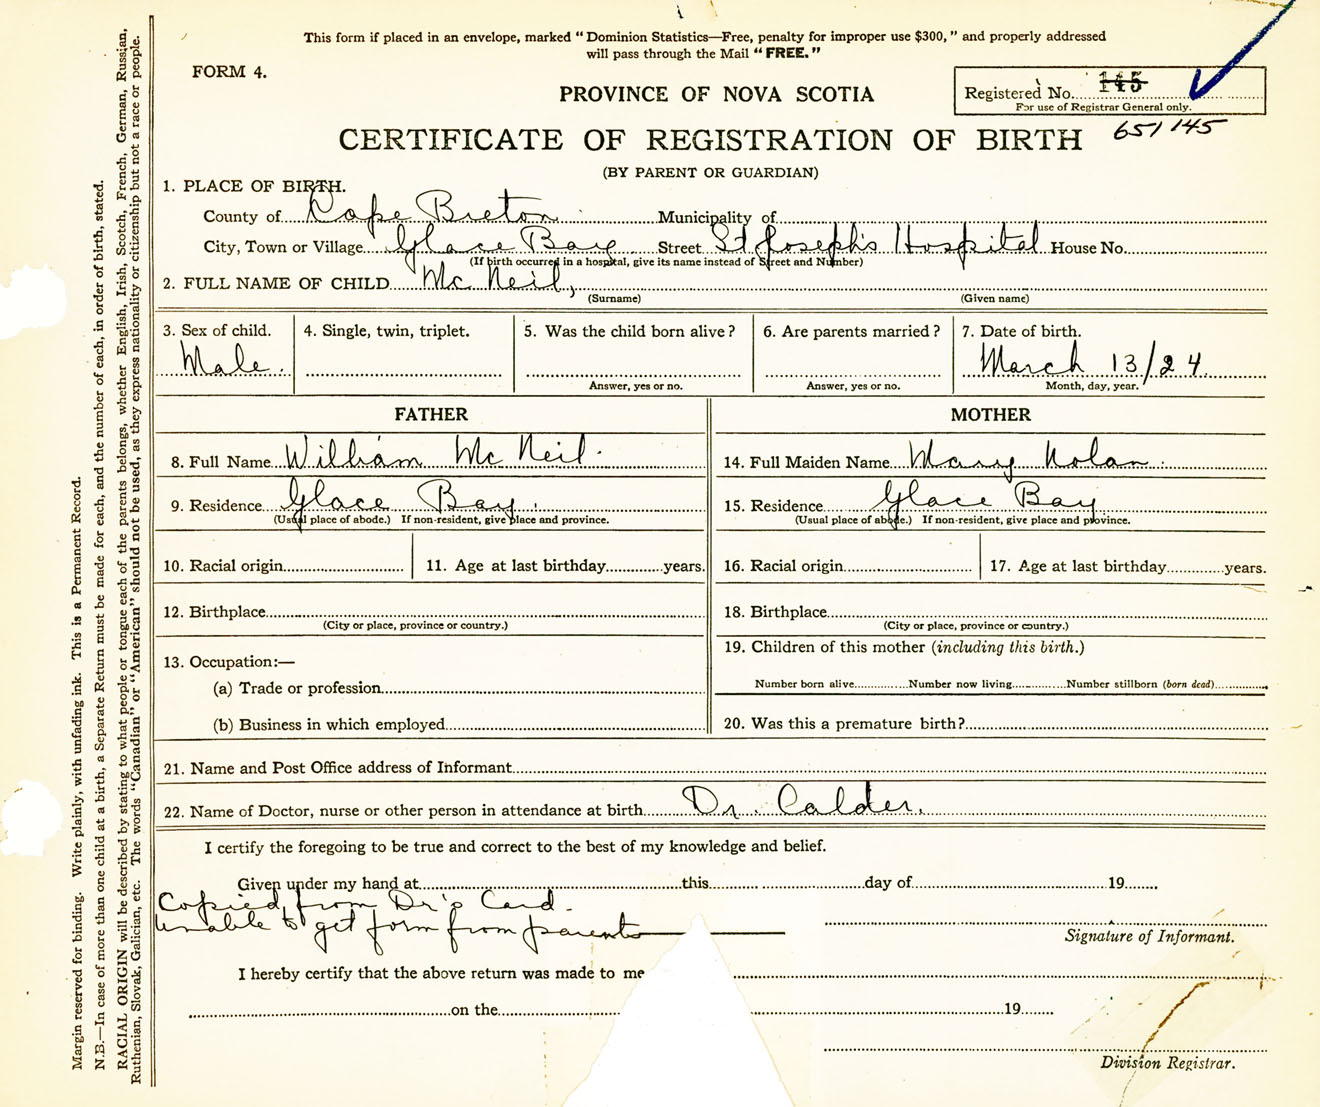 This form if placed in an envelope, marked "Dominion Statistics—Free, penalty for improper use $300," and properly addressed
will pass through the Mail "FREE."
FORM 4.
Registered No. 145
For use of Registrar General only.
651 145
PROVINCE OF NOVA SCOTIA
CERTIFICATE OF REGISTRATION OF BIRTH
(BY PARENT OR GUARDIAN)
1. PLACE OF BIRTH.
County of Cape Breton Municipality of
City, Town or Village Glace Bay Street St Joseph's Hospital House No.
(If birth occurred in a hospital, give its name instead of Street and Number)
2. FULL NAME OF CHILD Mc Neil,
(Surname) (Given name)
3. Sex of child. 4. Single, twin, triplet. 5. Was the child born alive? 6. Are parents married? 7. Date of birth.
Male. March 13/24.
Answer, yes or no. Answer, yes or no. Month, day, year.
FATHER MOTHER
8. Full Name William Mc Neil. 14. Full Maiden Name Mary Nolan.
9. Residence Glace Bay. 15. Residence Glace Bay
(Usual place of abode.) If non-resident, give place and province. (Usual place of abode.) If non-resident, give place and province.
10. Racial origin 11. Age at last birthday years. 16. Racial origin 17. Age at last birthday years.
12. Birthplace 18. Birthplace
(City or place, province or country.) (City or place, province or country.)
19. Children of this mother (including this birth.)
13. Occupation:—
(a) Trade or profession Number born alive Number now living Number stillborn (born dead)
(b) Business in which employed 20. Was this a premature birth?
21. Name and Post Office address of Informant
22. Name of Doctor, nurse or other person in attendance at birth Dr. Calder.
I certify the foregoing to be true and correct to the best of my knowledge and belief.
Given under my hand at this day of 19
Copied from Dr's Card.
Unable to get form from parents
Signature of Informant.
I hereby certify that the above return was made to me
on the 19
Division Registrar.
Margin reserved for binding. Write plainly, with unfading ink. This is a Permanent Record.
N.B.—In case of more than one child at a birth, a Separate Return must be made for each, and the number of each, in order of birth, stated.
RACIAL ORIGIN will be described by stating to what people or tongue each of the parents belongs, whether English, Irish, Scotch, French, German, Russian,
Ruthenian, Slovak, Galician, etc. The words "Canadian" or "American" should not be used, as they express nationality or citizenship but not a race or people.